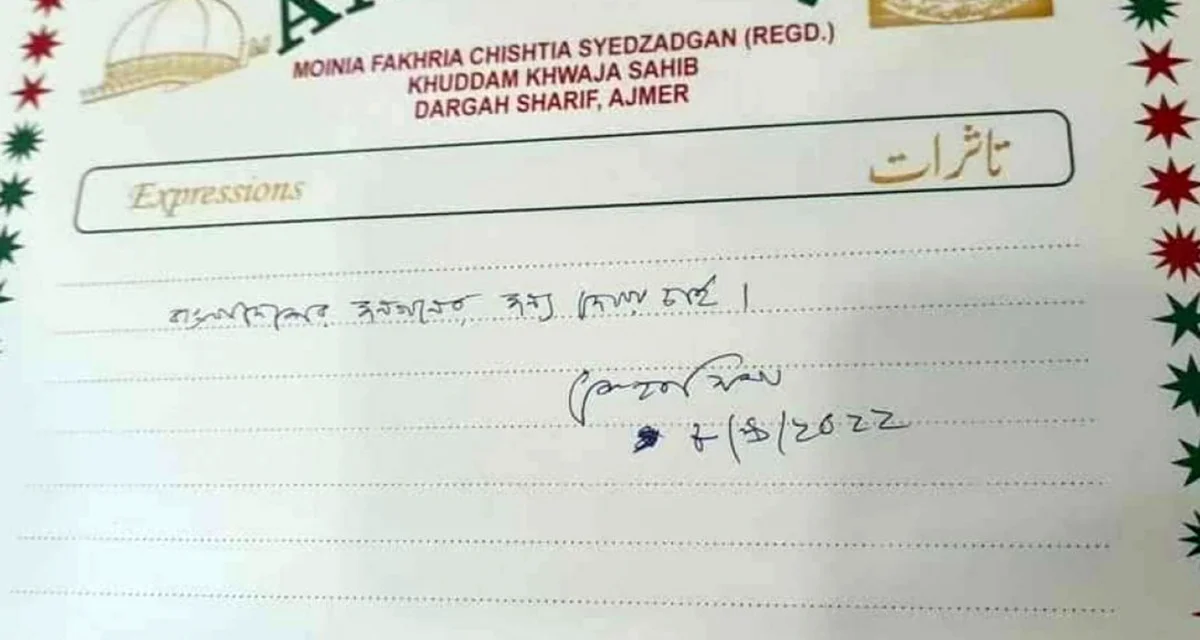 MOINIA FAKHRIA CHISHTIA SYEDZADGAN (REGD.)
KHUDDAM KHWAJA SAHIB
DARGAH SHARIF, AJMER
Expressions تاثرات
বাংলাদেশের জনগনের জন্য দোয়া চাই।
শেখ হাসিনা
৮/৯/২০২২